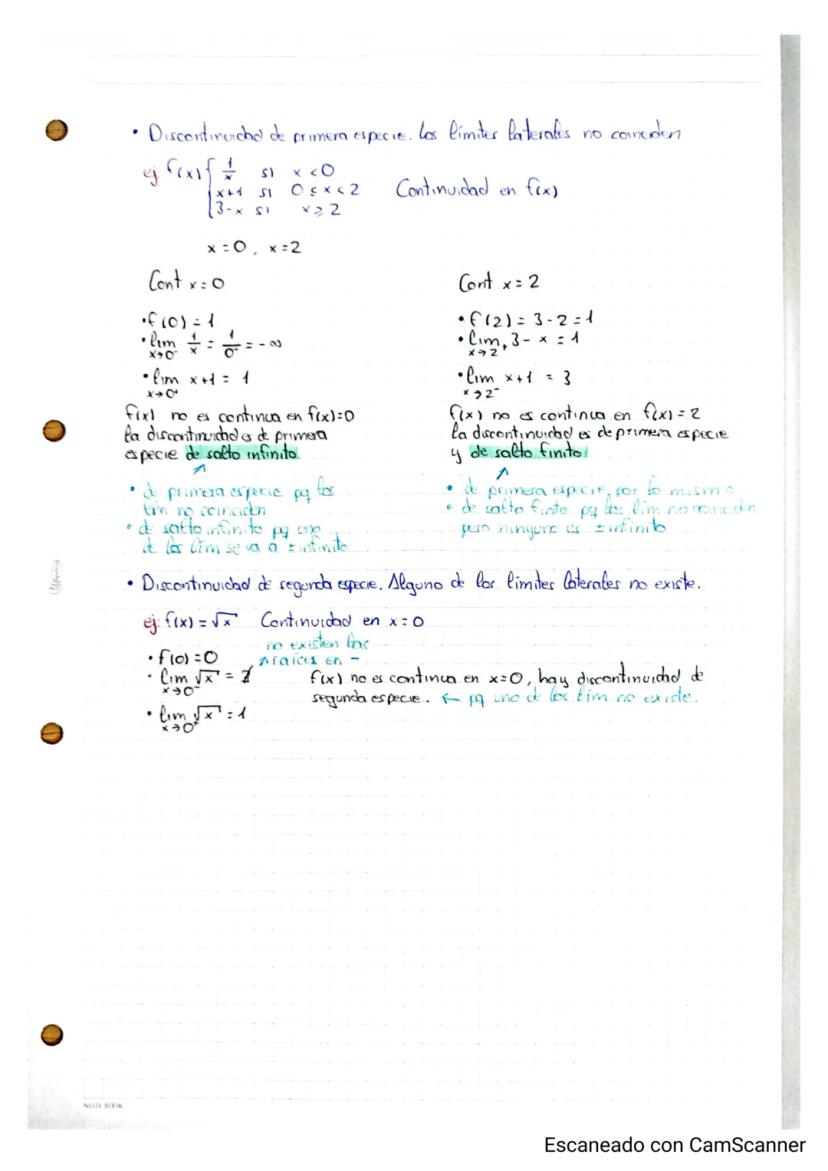 • Discontinuidad de primera especie. Los límites laterales no coinciden
ej f(x) { 1/x si x < 0
x+1 si 0 ≤ x < 2 Continuidad en f(x)
3-x si x ≥ 2
x = 0, x = 2
Cont x = 0
• f(0) = 1
• lim x→0⁻ 1/x = 1/0⁻ = -∞
• lim x→0⁺ x+1 = 1
f(x) no es continua en f(x)=0
la discontinuidad es de primera
especie de salto infinito
• de primera especie pq los
lim no coinciden
• de salto infinito pq uno
de los lim se va a ± infinito
Cont x = 2
• f(2) = 3-2 = 1
• lim x→2⁺ 3-x = 1
• lim x→2⁻ x+1 = 3
f(x) no es continua en f(x) = 2
la discontinuidad es de primera especie
y de salto finito
• de primera especie por lo mismo
• de salto finito pq los lim no coinciden
pero ninguno es ± infinito
• Discontinuidad de segunda especie. Alguno de los límites laterales no existe.
ej: f(x) = √x Continuidad en x = 0
no existen las
raíces en -
• f(0) = 0
• lim x→0⁻ √x =
• lim x→0⁺ √x = 1
f(x) no es continua en x=0, hay discontinuidad de
segunda especie. ← pq uno de los lim no existe.
NOTE BOOK
Escaneado con CamScanner